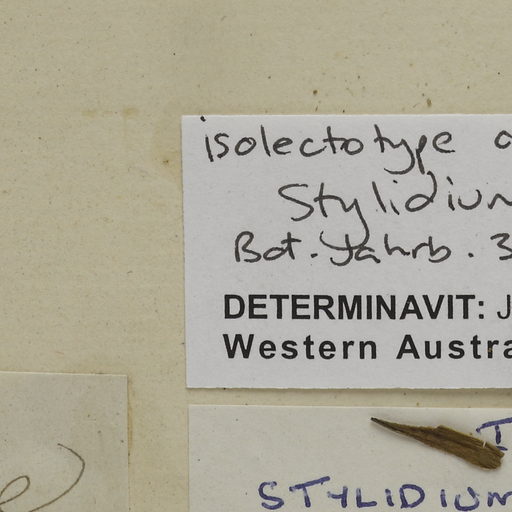 isolectotype
Stylidium
Bot. Jahrb. 3
DETERMINAVIT: J
Western Austra
STYLIDIUM